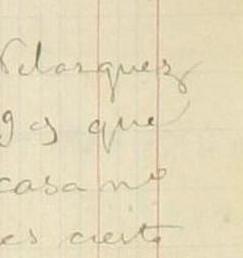 Velasquez
9 es que
casa no
es cierto